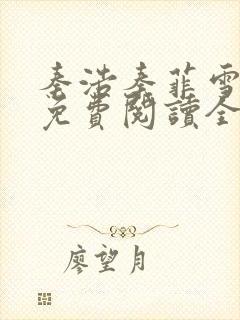 秦浩秦菲雪
免費閱讀全
廖望月